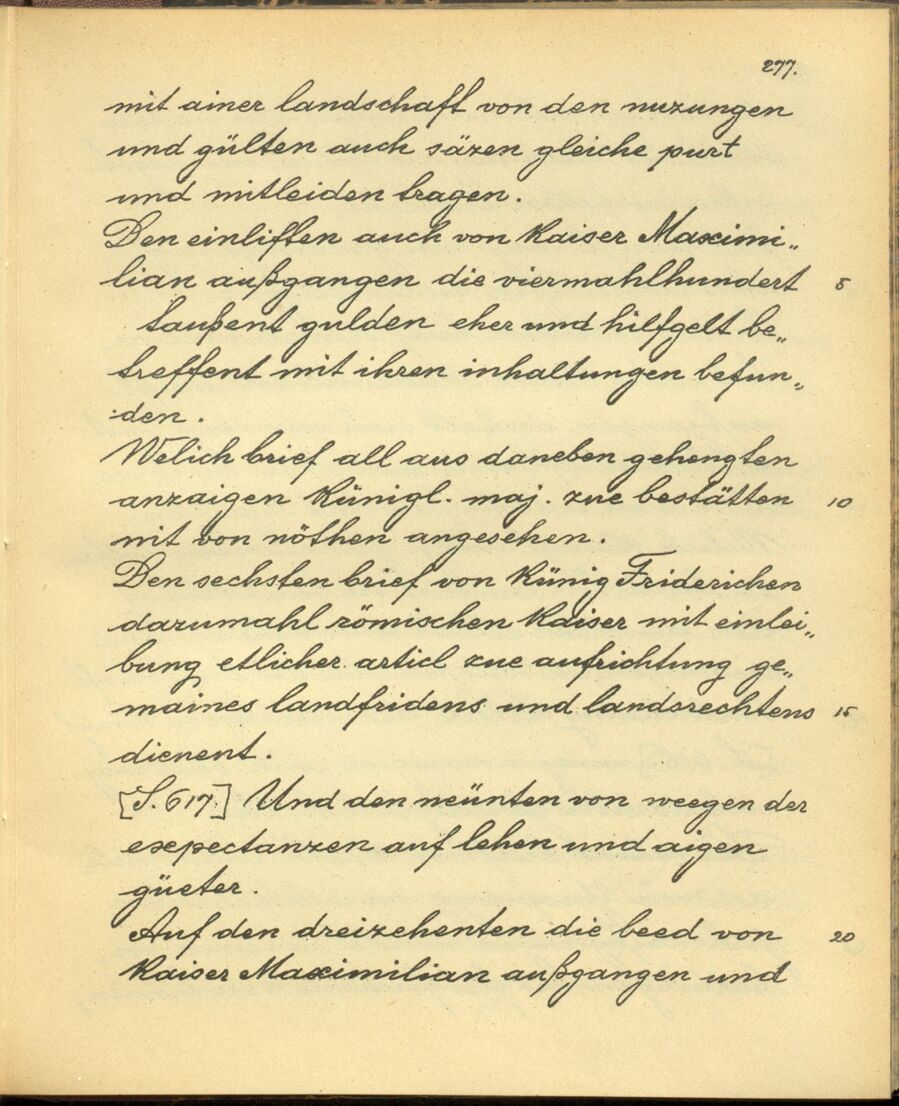 277.
mit ainer landschaft von den nuzungen
und gülten auch säzen gleiche purt
und mitleiden tragen.
Den einliften auch von Kaiser Maximi„
lian außgangen die viermahlhundert 5
taußent gulden eher und hilfgelt be„
treffent mit ihren inhaltungen befun„
den.
Welich brief all aus daneben gehengten
anzaigen Künigl. maj. zue bestätten 10
nit von nöthen angesehen.
Den sechsten brief von Künig Friderichen
dazumahl römischen Kaiser mit einlei„
bung etlicher articl zue aufrichtung ge„
maines landfridens und landsrechtens 15
dienent.
[S. 617.] Und den neünten von weegen der
exepectanzen auf lehen und aigen
güeter.
Auf den dreizehenten die beed von 20
Kaiser Maximilian außgangen und